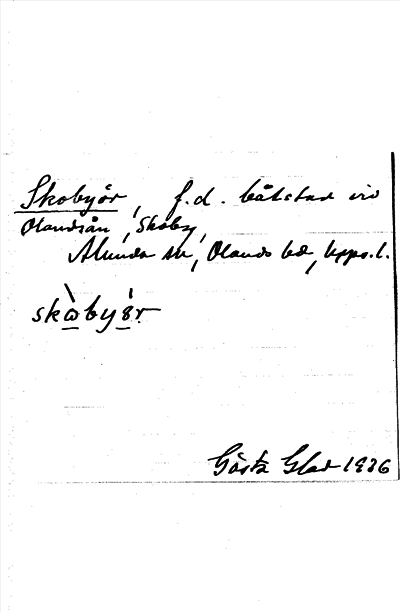 Skobyör, f.d. båtstad vid
Olandsån, Skoby,
Alunda sn, Olands hd, Upps.l.
skὼby8́r
Gösta Glad 1936